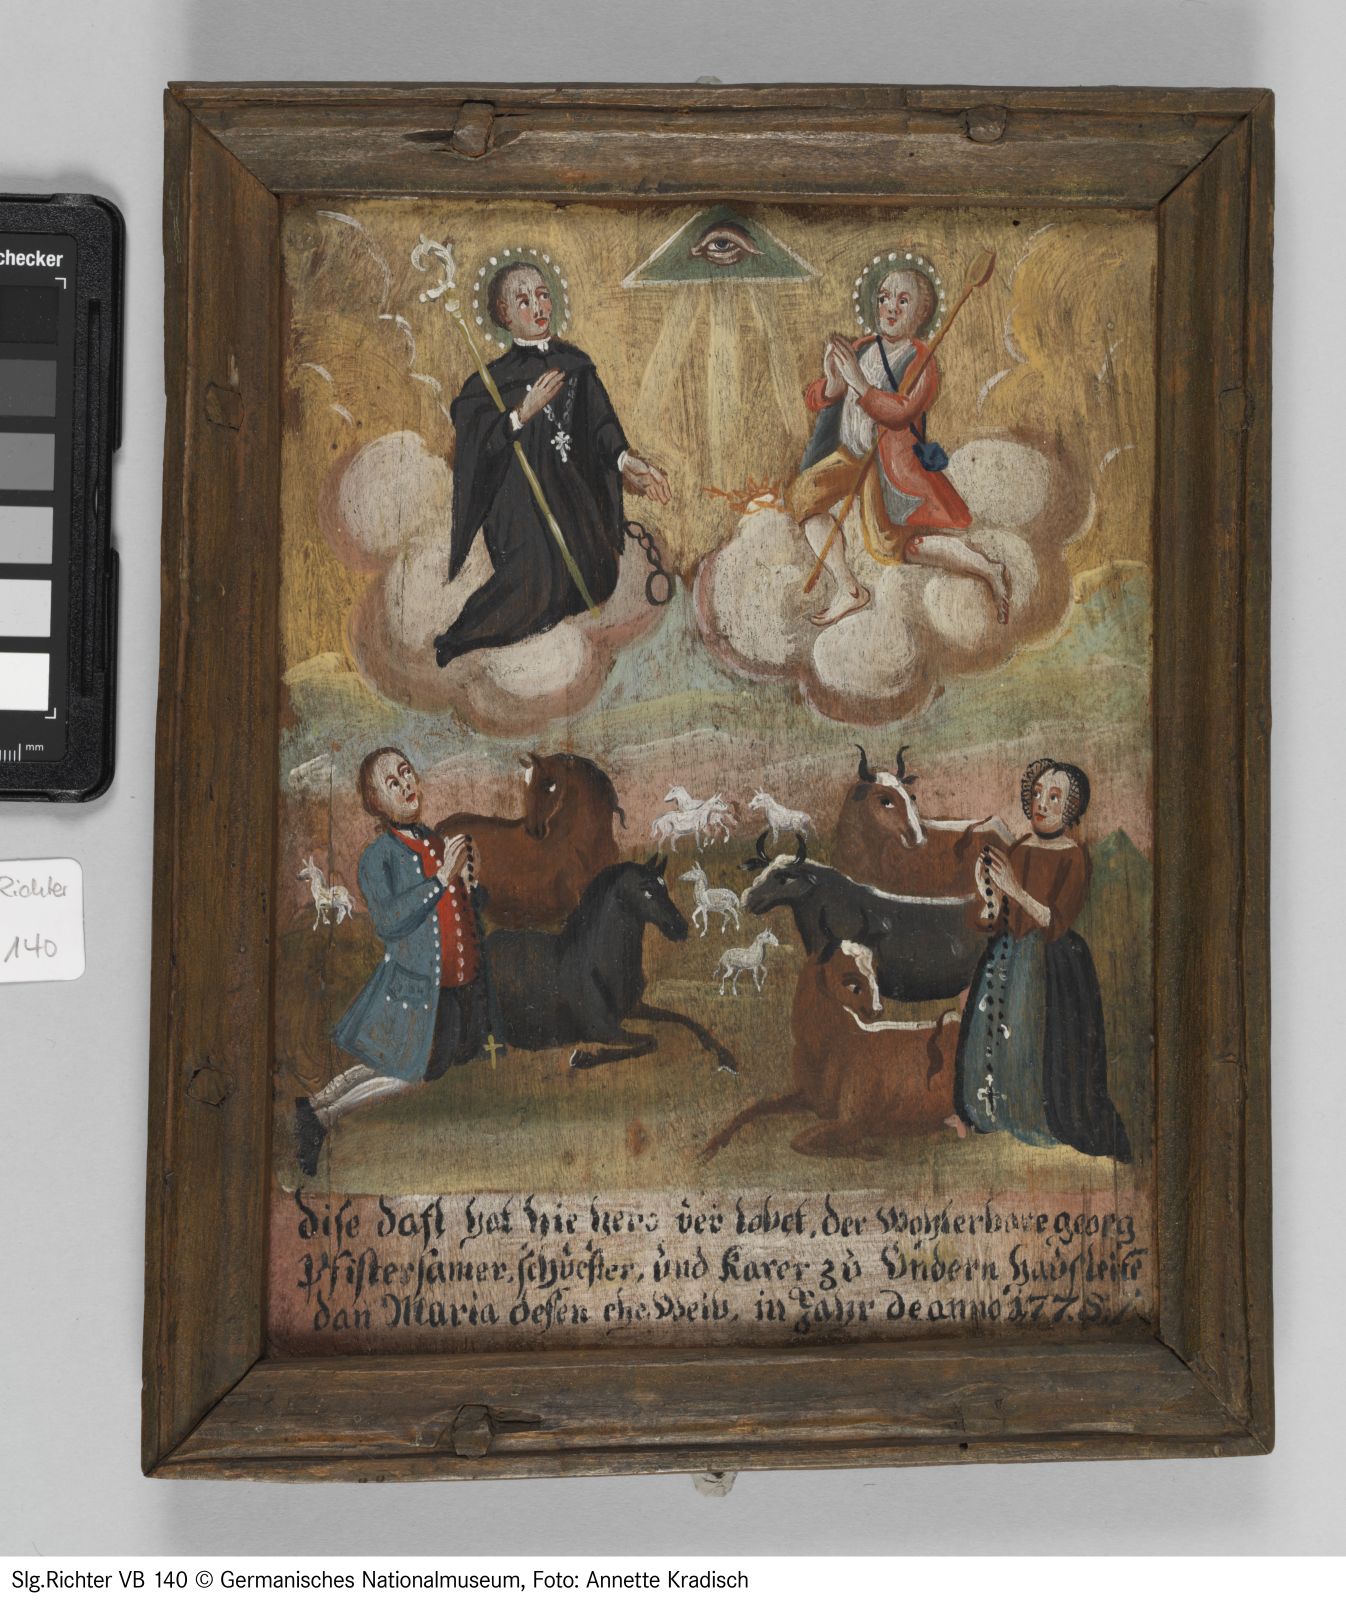 checker
mm
Richter
140
dise dafl hat hie hero ver lobet, der Wohlerbare georg
Pfister samer, schuester, und Karer zu Undern hausleite
dan Maria desen ehe Weib, in Jahr de anno 177
Slg.Richter VB 140 © Germanisches Nationalmuseum, Foto: Annette Kradisch